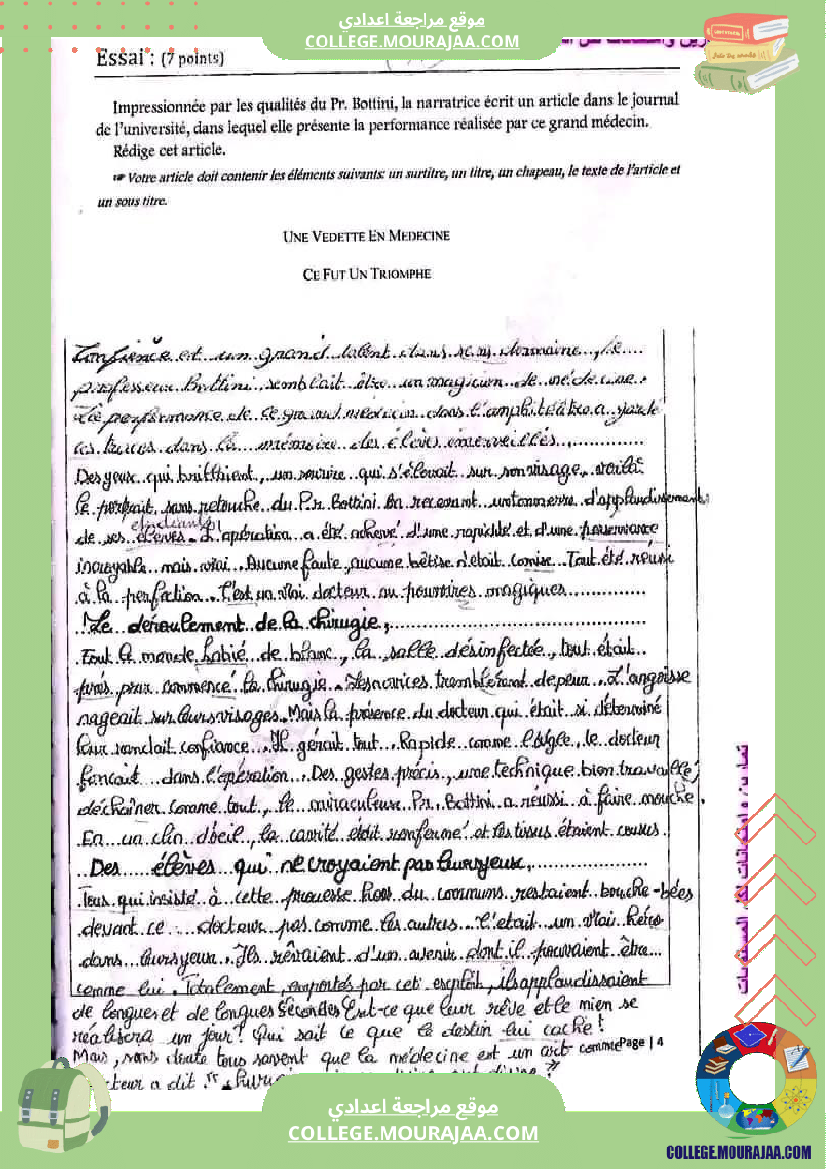 موقع مراجعة اعدادي
COLLEGE.MOURAJAA.COM
Essai : (7 points)
Impressionnée par les qualités du Pr. Bottini, la narratrice écrit un article dans le journal
de l'université, dans lequel elle présente la performance réalisée par ce grand médecin.
Rédige cet article.
☞ Votre article doit contenir les éléments suivants: un surtitre, un titre, un chapeau, le texte de l'article et
un sous titre.
UNE VEDETTE EN MEDECINE
CE FUT UN TRIOMPHE
et un grand talent dans son domaine, le
professeur Bottini semblait être un magicien de médecine.
La performance de ce grand médecin dans l'amphithéâtre a gardé
les traces dans la mémoire des élèves émerveillés
Des yeux qui brillaient, un sourire qui s'élevait sur son visage, voilà
le portrait sans retouche du Pr. Bottini en recevant un tonnerre d'applaudissements
étudiants
de ses élèves. L'opération a été achevé d'une rapidité et d'une
incroyable mais vrai. Aucune faute, aucune bêtise n'était comise. Tout été réussi
à la perfection. C'est un vrai docteur au pouvoires magiques
Le déroulement de la chirugie,
Tout le monde habié de blanc, la salle désinfectée, tout était
près pour commencé la chirugie. Les novices tremblèrent de peur. L'angoisse
nageait sur leurs visages. Mais la présence du docteur qui était si déterminé
leur rendait confiance. Il gérait tout. Rapide comme l'aigle, le docteur
foncait dans l'opération. Des gestes précis, une technique bien travaillé,
déchaîner comme tout, le miraculeux Pr. Bottini a réussi à faire mouche.
En un clin d'oeil, la cavité était renfermé et les tissus étaient cousus.
Des élèves qui ne croyaient pas leurs yeux,
Tous qui insisté à cette prouesse hors du communs restaient bouche-bées
devant ce docteur pas comme les autres. C'était un vrai héro
dans leurs yeux. Ils rêvaient d'un avenir dont il pouvaient être
comme lui. Totalement, emportés par cet exploit, ils applaudissaient
de longues et de longues secondes Est-ce que leur rêve et le mien se
réalisera un jour? Qui sait ce que le destin lui cache!
Mais, sans doute tous savent que la médecine est un art comme
Page | 4
a dit :"
تمارين و امتحانات لكل المستويات
موقع مراجعة اعدادي
COLLEGE.MOURAJAA.COM
COLLEGE.MOURAJAA.COM